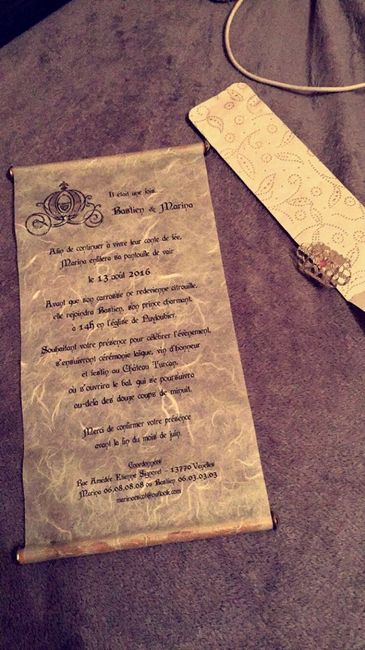 Il était une fois
Bastien & Marina
Afin de continuer à vivre leur conte de fée,
Marina enfilera sa pantoufle de vair
le 13 août 2016
Avant que son carrosse ne redevienne citrouille,
elle rejoindra Bastien, son prince charmant,
à 14h en l'église de Puyloubier.
Souhaitant votre présence pour célébrer l'évènement,
s'ensuivront cérémonie laïque, vin d'honneur
et festin au Château Turcan,
où s'ouvrira le bal qui se poursuivra
au-delà des douze coups de minuit.
Merci de confirmer votre présence
avant la fin du mois de juin.
Coordonnées
Rue Amédée Etienne - 13770 Venelles
Marina 06.08.08.08 ou Bastien 06.03.03.03